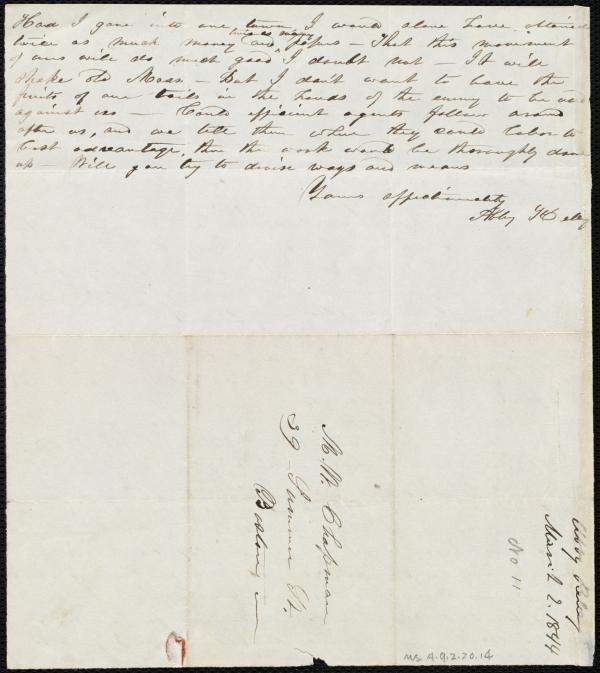 Had I gone into one town, I would alone have obtained
twice as much money and twice as many papers — That this movement
of ours will do much good I doubt not — It will
shake old Mass — But I don't want to leave the
fruits of our toils in the hands of the enemy to be used
against us — Could efficient agents follow around
after us, and we tell them where they could labor to
best advantage, then the work would be thoroughly done
up — Will you try to devise ways and means
Yours affectionately
Abby Kelley
M. W. Chapman
39 Summer St.
Boston
Abby Kelley
March 2. 1844
No 11
Ms A.9.2.20.14